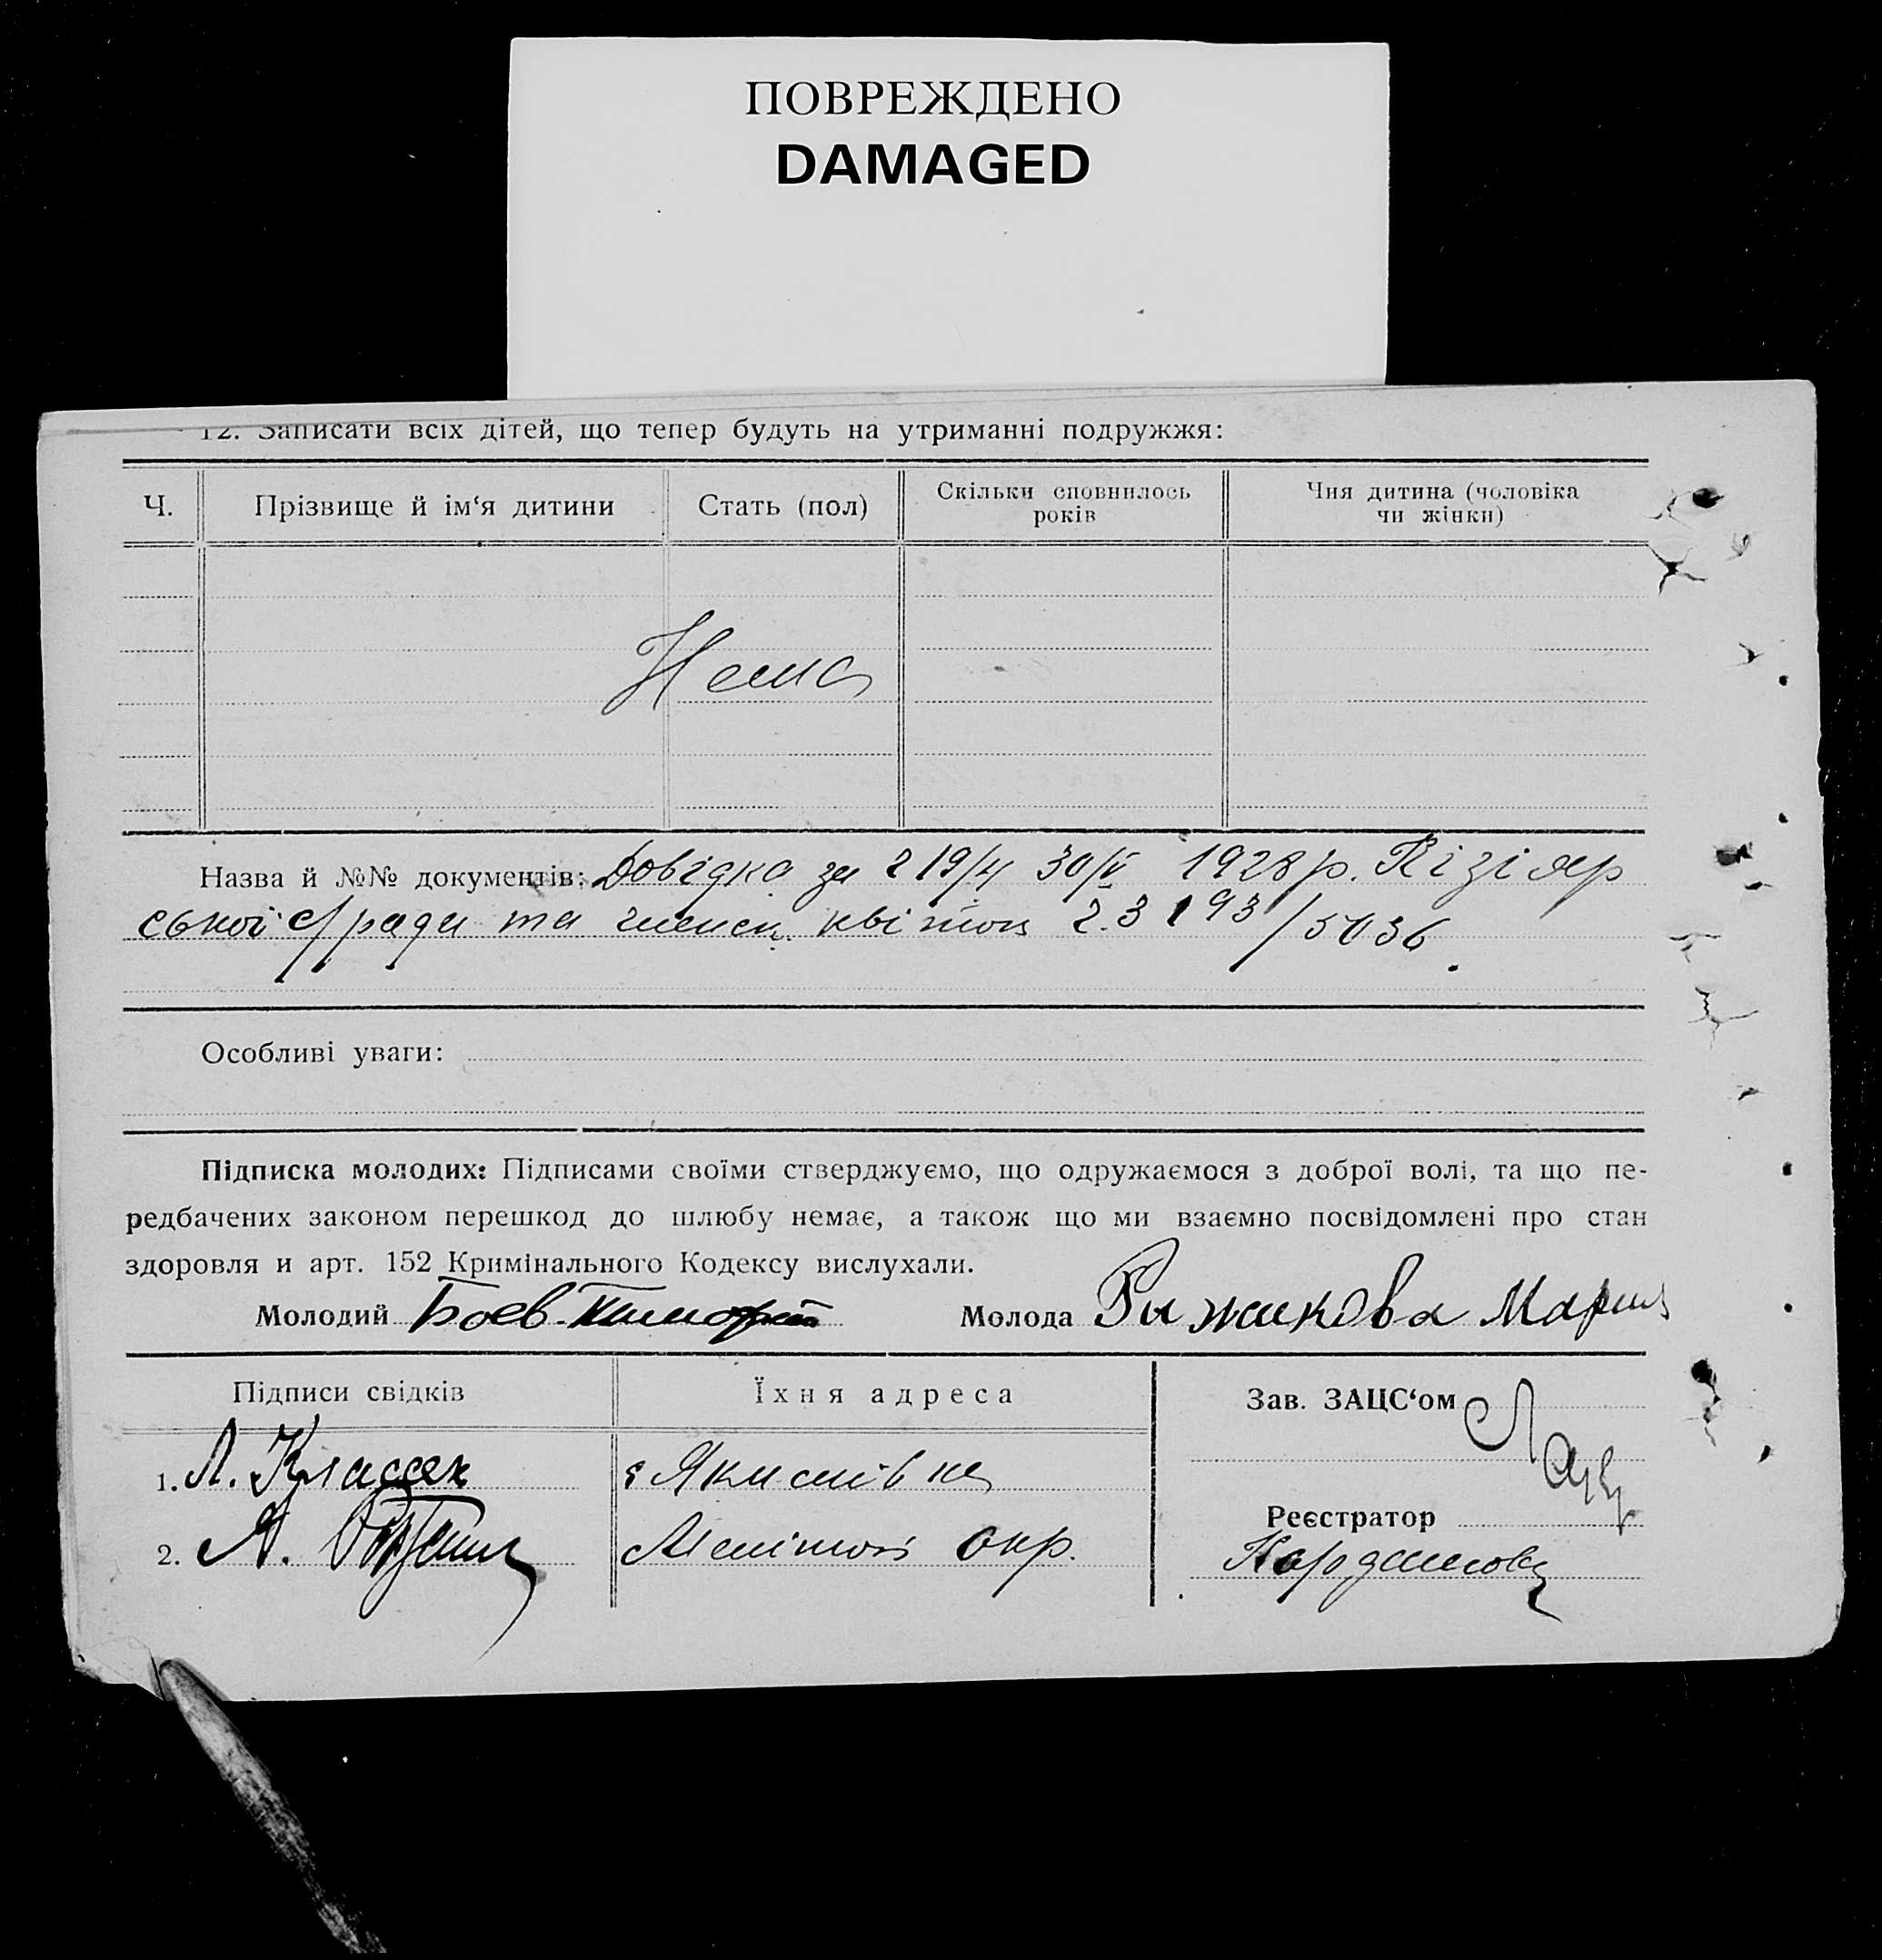 ПОВРЕЖДЕНО
DAMAGED
12. Записати всіх дітей, що тепер будуть на утриманні подружжя:
Ч. Прізвище й ім‘я дитини Стать (пол) Скільки сповнилось років Чия дитина (чоловіка чи жінки)
Нема
Назва й №№ документів: Довідка за 219/4 30/V 1928 р. Кізіяр
ської с/ради та членск. квіток 2.3193/5036.
Особливі уваги:
Підписка молодих: Підписами своїми стверджуємо, що одружаємося з доброї волі, та що пе-
редбачених законом перешкод до шлюбу немає, а також що ми взаємно посвідомлені про стан
здоровля и арт. 152 Кримінального Кодексу вислухали.
Молодий Боев Молода Рыжикова Мария
Підписи свідків Їхня адреса Зав. ЗАЦС‘ом
1. Л. с Якимівка
Реєстратор
2. А. Мелітоп окр.